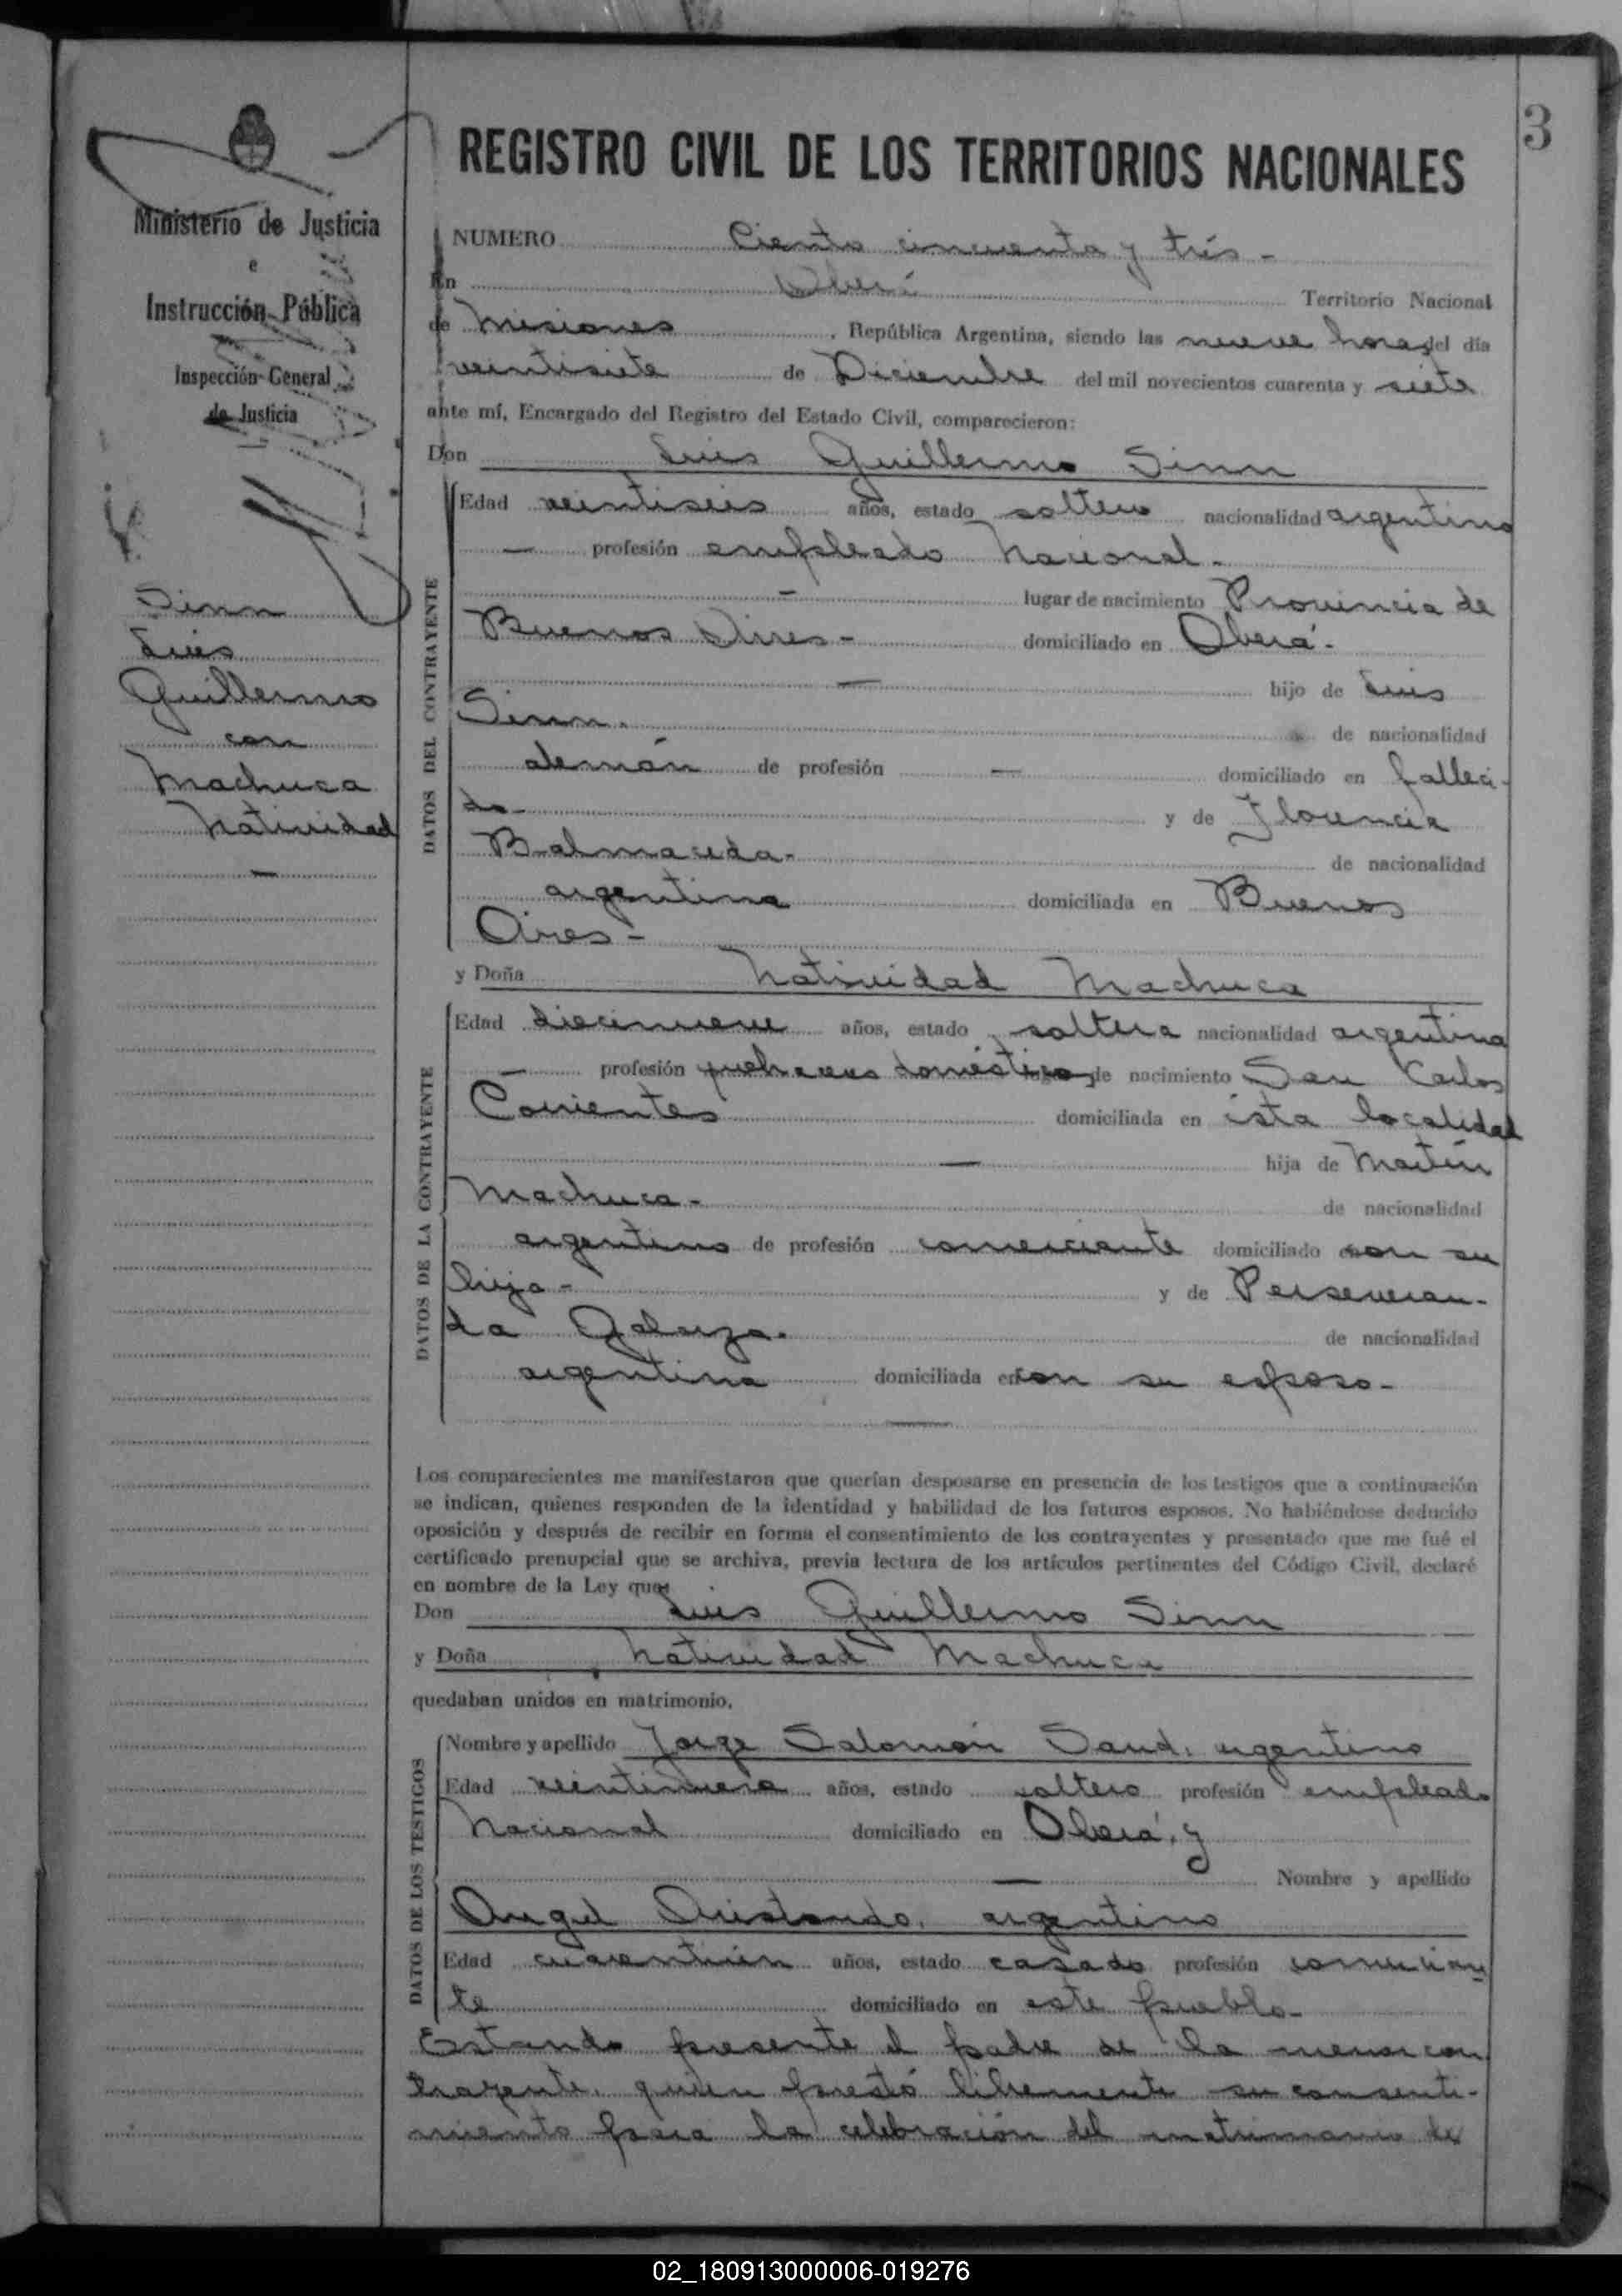 3
Ministerio de Justicia
e
Instrucción Pública
Inspección General
de Justicia
Sinn
Luis
Guillermo
con
Machuca
Natividad
REGISTRO CIVIL DE LOS TERRITORIOS NACIONALES
NUMERO Ciento cincuenta y trés -
En Oberá Territorio Nacional
de Misiones, República Argentina, siendo las nueve horas del día
veintisiete de Diciembre del mil novecientos cuarenta y siete
ante mí, Encargado del Registro del Estado Civil, comparecieron:
Don Luis Guillermo Sinn
DATOS DEL CONTRAYENTE
Edad veintiseis años, estado soltero nacionalidad argentino
— profesión empleado Nacional -
- lugar de nacimiento Provincia de
Buenos Aires - domiciliado en Oberá -
— hijo de Luis
Sinn. de nacionalidad
alemán de profesión — domiciliado en falleci-
do - y de Florencia
Balmaceda - de nacionalidad
argentina domiciliada en Buenos
Aires -
y Doña Natividad Machuca
DATOS DE LA CONTRAYENTE
Edad diecinueve años, estado soltera nacionalidad argentina
— profesión quehaceres domésticos de nacimiento San Carlos
Corrientes domiciliada en ésta localidad
— hija de Martín
Machuca - de nacionalidad
argentino de profesión comerciante domiciliado con su
hija - y de Perseveran-
da Galarza. de nacionalidad
argentina domiciliada con su esposo -
Los comparecientes me manifestaron que querían desposarse en presencia de los testigos que a continuación
se indican, quienes responden de la identidad y habilidad de los futuros esposos. No habiéndose deducido
oposición y después de recibir en forma el consentimiento de los contrayentes y presentado que me fué el
certificado prenupcial que se archiva, previa lectura de los artículos pertinentes del Código Civil, declaré
en nombre de la Ley que:
Don Luis Guillermo Sinn
y Doña Natividad Machuca
quedaban unidos en matrimonio.
DATOS DE LOS TESTIGOS
Nombre y apellido Jorge Salomón Saud, argentino
Edad veintinueve años, estado soltero profesión empleado
Nacional domiciliado en Oberá, y
— Nombre y apellido
Angel Aristondo, argentino
Edad cuarentiún años, estado casado profesión comercian
te domiciliado en este pueblo -
Estando presente el padre de la menor con
trayente, quien prestó libremente su consenti-
miento para la celebración del matrimonio de
02_180913000006-019276